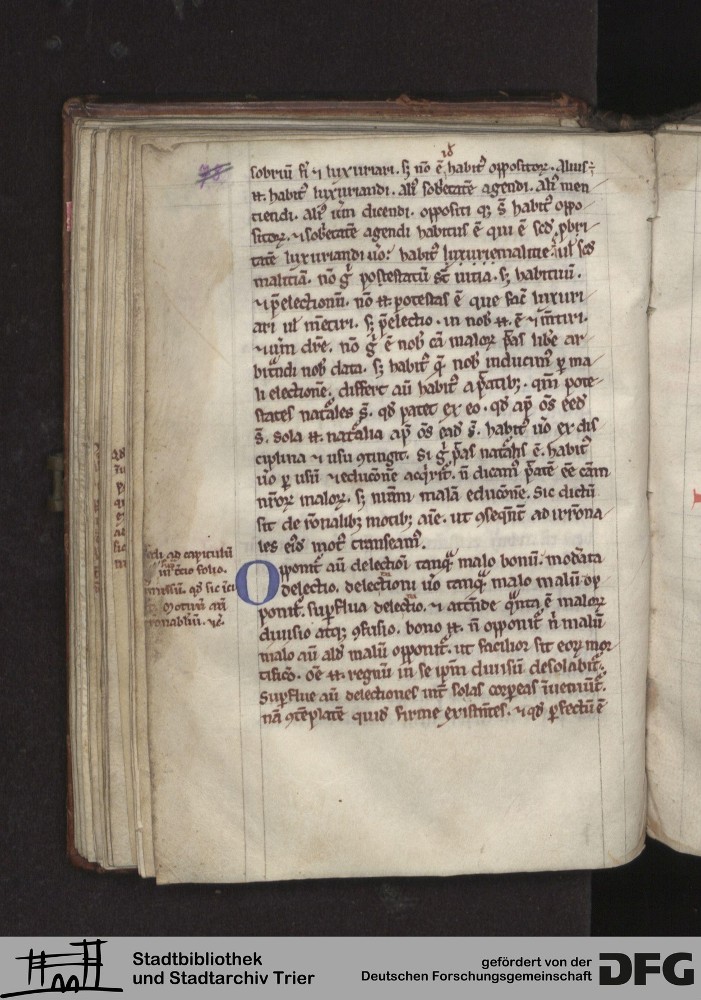 id
sobriū fi᷒ ⁊ luxuriari. sꝫ nō ē habit᷒ oppositoꝝ. Alius
.n. habit᷒ luxuriandi. ali᷒ sobrietatē agendi. ali᷒ men
tiendi. ali᷒ uṁ dicendi. oppositi qꝫ s̄ habit᷒ oppo
sitoꝝ. ⁊ sobrietatē agendi habitus ē qui ē scd̄ p̄bri
tatē luxuriandi uō. habit᷒ luxurie malitie ul̄ scd̄
malitiā. nō gͦ potestatū st̄ uitia. sꝫ habituū.
⁊ p̄electionū. nō .n. potestas ē que facit luxuri
ari ul̄ mētiri. sꝫ p̄electio. in nob̄ .n. ē ⁊ m̄tiri.
⁊ uṁ dic̄e. nō gͦ ē nob̄ cā maloꝝ p̄tas libere ar
bitrandi nob̄ data. sꝫ habit᷒ qͥ nob̄ inducim᷒ ꝑ ma
li electionē. differt au̅ habit᷒ a p̄tatibꝫ. qm̄ pote
states nat᷑ales s̄. qd̄ patet ex eo. qd̄ ap̄ om̄s eed̄
s̄. sola .n. nat᷑alia ap̄ om̄s ead̄ s̄. habit᷒ uō ex dis
ciplina ⁊ usu ꝯtingit. Si gͦ p̄tas nat᷑alis ē. habit᷒
uō ꝑ usū ⁊ educ̄onē acq̄rit᷑. n̄ dicam᷒ p̄tatē ēe cām
nr̄oꝝ maloꝝ. sꝫ nr̄am malā educ̄onē. Sic dictū
sit de rōnalibꝫ motibꝫ aīe. ut ꝯseq̄nt̄ ad irrōna
les ei᷒ mot᷒ transeam᷒.
Opponit᷑ au̅ delectioi tanqͣ malo bonū. mod̄ata
delectio. delectioni uō tanqͣ malo malū op
ponit᷑. suꝑflua delectio. ⁊ attēnde qͣnta ē maloꝝ
diuisio atqꝫ ꝯfusio. bono .n. n̄ opponit᷑ n̄ malū
malo au̅ aliud malū opponit᷑. ut facilior sit eoꝝ mor
tifico. Om̄e .n. regnū in se ip̄m diuisū desolabit᷑.
Suꝑflue au̅ delectiones int᷑ solas corꝑeas inueniūt᷑.
nā ꝯtēplatē quid᷒ firme existētes. ⁊ qd̄ ꝑfectū ē
ad capitulū
in tͨio folio.
missū. qd̄ sic icī
Motuū au̅
rōnabiliū. ⁊c.
Stadtbibliothek
und Stadtarchiv Trier
gefördert von der
Deutschen Forschungsgemeinschaft
DFG